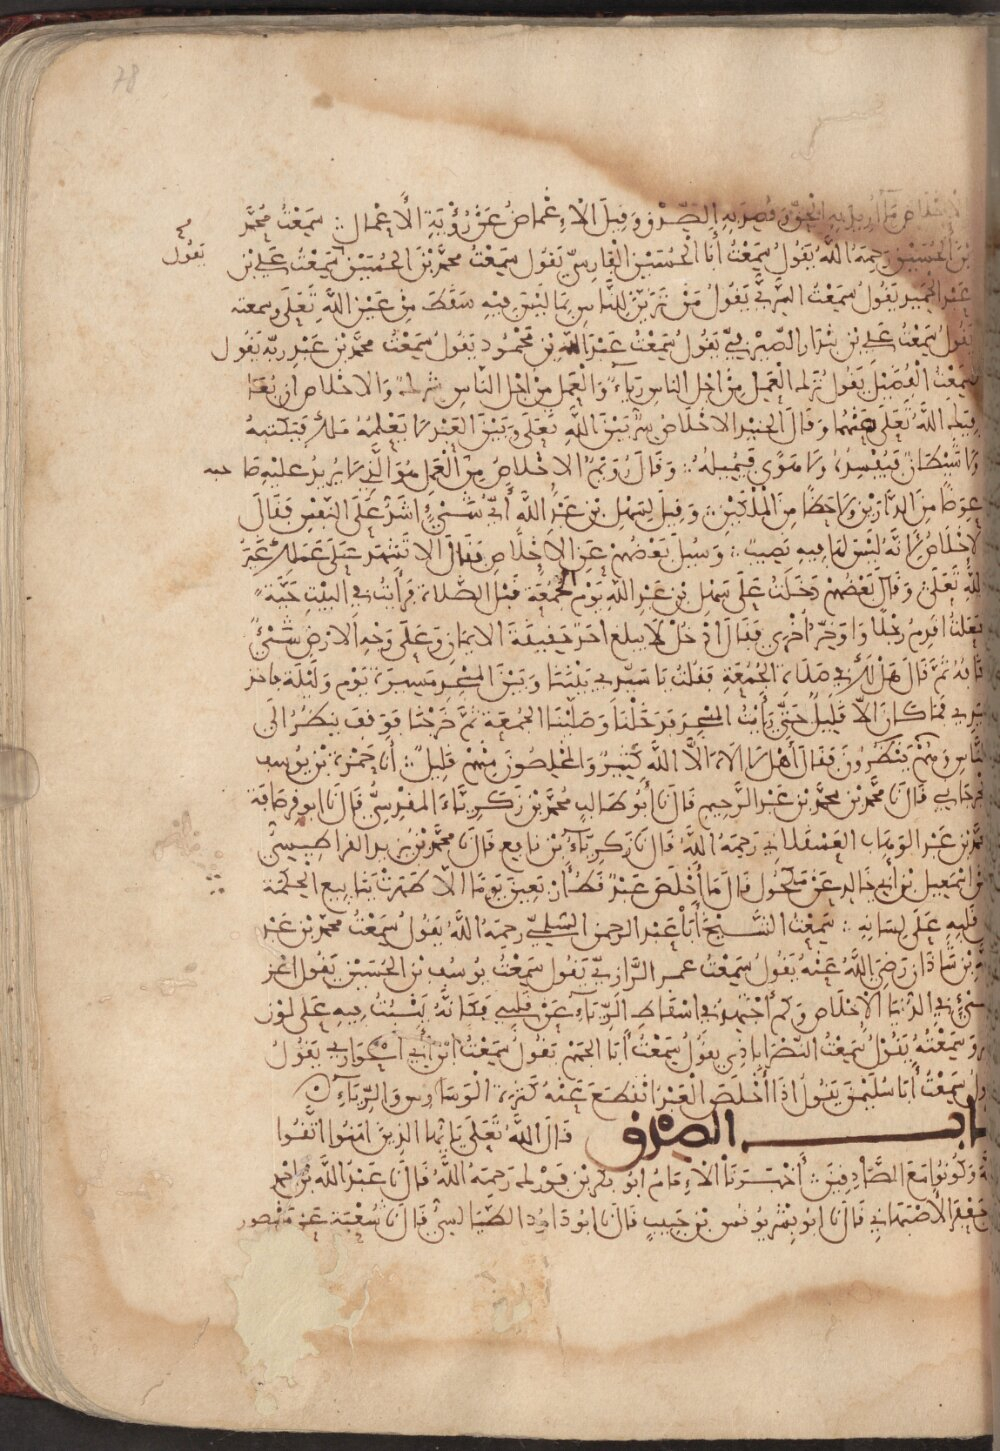 78
الاخلاص ما اريد به الحق وقصد به الصدق وقيل الاغماض عن رؤية الاعمال سمعت محمد
بن الحسين رحمه الله يقول سمعت ابا الحسين الفارسي يقول سمعت محمد بن الحسين سمعت علي بن
يقول
عبد الحميد يقول سمعت السري يقول من تزين للناس بما ليس فيه سقط من عين الله تعلى وسمعته
يقول سمعت علي بن بندار الصيرفي يقول سمعت عبد الله بن محمود يقول سمعت محمد بن عبد ربه يقول
سمعت الفضيل يقول ترك العمل من اجل الناس رياء والعمل من اجل الناس شرك والاخلاص ان يعا
فيك الله تعلى عنهما وقال الجنيد الاخلاص سر بين الله تعلى وبين العبد لا يعلمه ملك فيكتبه
ولا شيطان فيفسده ولا هوى فيميله وقال رويم الاخلاص من العمل هو الذي لا يريد عليه صاحبه
عوضا من الدارين ولا حظا من الملكين وقيل لسهل بن عبد الله اي شيء اشد على النفس فقال
الاخلاص لانه ليس لها فيه نصيب وسيل بعضهم عن الاخلاص فقال الا تشهد على عملك غير
الله تعلى وقال بعضهم دخلت على سهل بن عبد الله يوم الجمعة قبل الصلاة فرأيت في البيت حية
فجعلت اقدم رجلا واوخر اخرى فقال ادخل لا يبلغ احد حقيقة الايمان وعلى وجه الارض شيء
يخافه ثم قال هل لك في صلاة الجمعة فقلت يا سيدي بيننا وبين المسجد مسيرة يوم وليلة فاخذ
بيدي فما كان الا قليل حتى رأيت المسجد فدخلنا وصلينا الجمعة ثم خرجنا فوقف ينظر الى
الناس وهم ينظرون فقال اهل لا اله الا الله كثير والمخلصون منهم قليل انا حمزة بن يوسف
الجرجاني قال نا محمد بن محمد بن عبد الرحيم قال نا ابو طالب محمد بن زكرياء المقدسي قال نا ابو قرصافة
محمد بن عبد الوهاب العسقلاني رحمه الله قال نا زكرياء بن نافع قال نا محمد بن يزيد القراطيسي
عن اسمعيل بن ابي خالد عن مكحول قال ما اخلص عبد قط اربعين يوما الا ظهرت ينابيع الحكمة
من قلبه على لسانه سمعت الشيخ ابا عبد الرحمن السلمي رحمه الله يقول سمعت محمد بن عبد
الله بن شاذان رضي الله عنه يقول سمعت عمر الرازي يقول سمعت يوسف بن الحسين يقول اعز
شيء في الدنيا الاخلاص وكم اجتهد في اسقاط الرياء عن قلبي فكانه ينبت فيه على لون
وسمعته يقول سمعت النصراباذي يقول سمعت ابا الجهم يقول سمعت ابن ابي الحواري يقول
سمعت ابا سليمن يقول اذا اخلص العبد انقطع عنه كثرة الوساوس والرياء
باب الصدق قال الله تعلى يا ايها الذين امنوا اتقوا
الله وكونوا مع الصادقين اخبرنا الامام ابو بكر بن فورك رحمه الله قال نا عبد الله بن احمد
جعفر الاصبهاني قال نا ابو بشر يونس بن حبيب قال نا ابو داود الطيالسي قال نا شعبة عن منصور